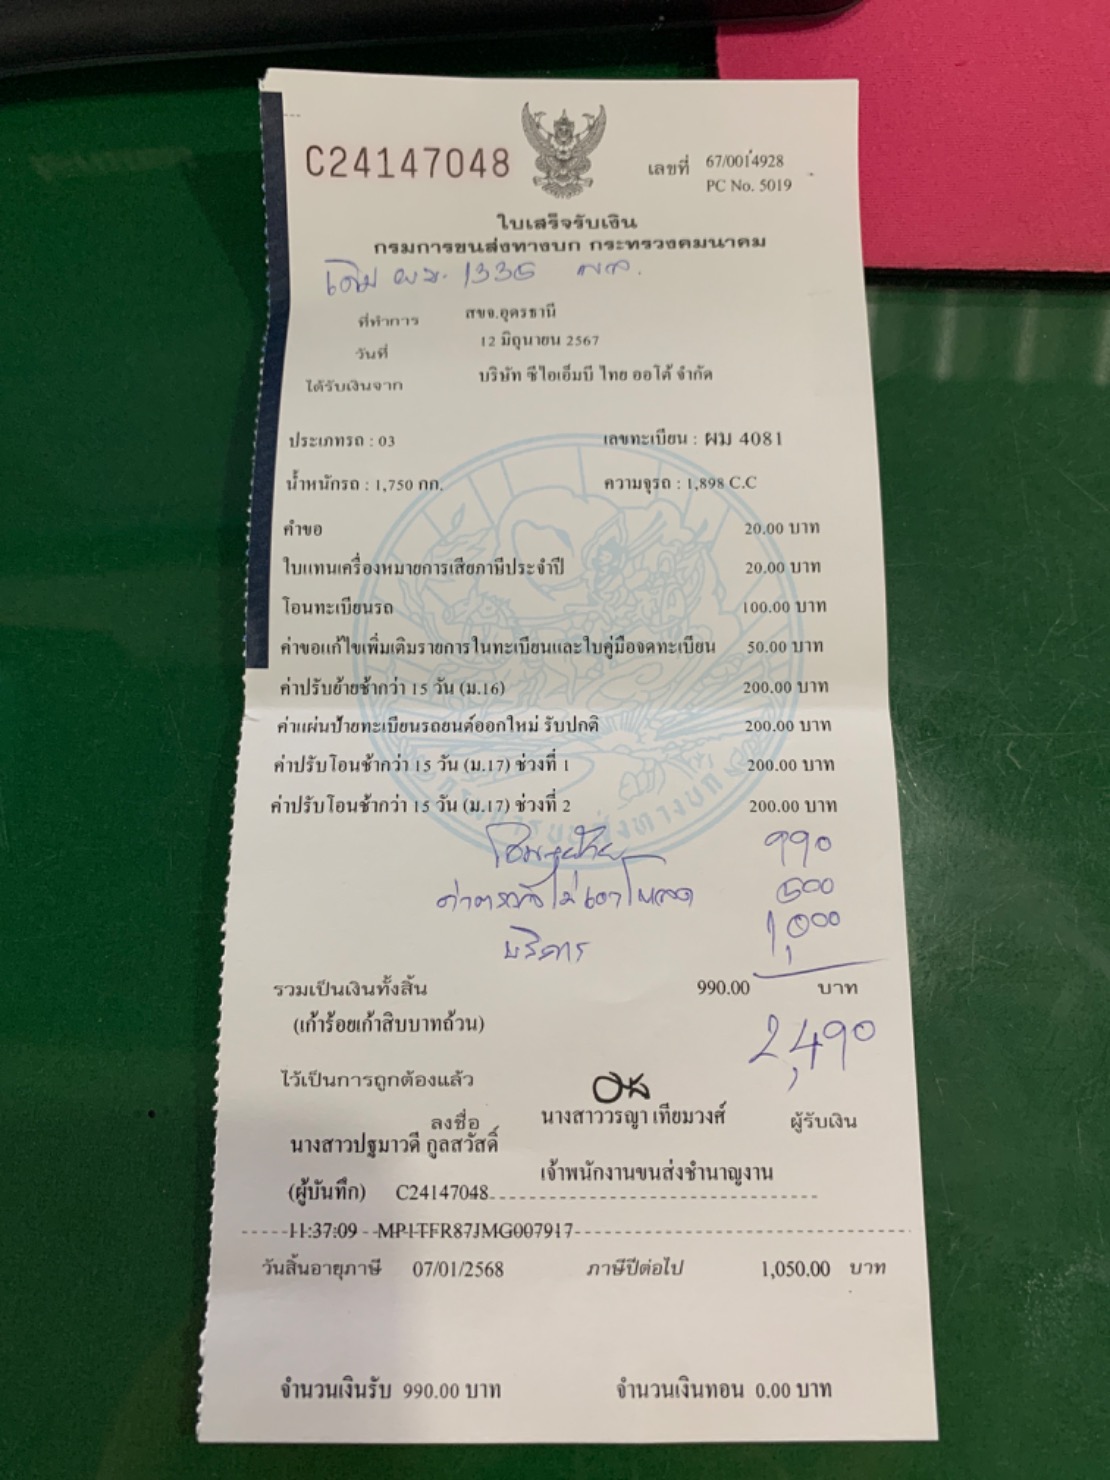 C24147048
เลขที่ 67/0014928
PC No. 5019
ใบเสร็จรับเงิน
กรมการขนส่งทางบก กระทรวงคมนาคม
เดิม ผม. 1336
ที่ทำการ สขจ.อุดรธานี
วันที่ 12 มิถุนายน 2567
ได้รับเงินจาก บริษัท ซีไอเอ็มบี ไทย ออโต้ จำกัด
ประเภทรถ : 03 เลขทะเบียน : ผม 4081
น้ำหนักรถ : 1,750 กก. ความจุรถ : 1,898 C.C
คำขอ 20.00 บาท
ใบแทนเครื่องหมายการเสียภาษีประจำปี 20.00 บาท
โอนทะเบียนรถ 100.00 บาท
ค่าขอแก้ไขเพิ่มเติมรายการในทะเบียนและใบคู่มือจดทะเบียน 50.00 บาท
ค่าปรับย้ายช้ากว่า 15 วัน (ม.16) 200.00 บาท
ค่าแผ่นป้ายทะเบียนรถยนต์ออกใหม่ รับปกติ 200.00 บาท
ค่าปรับโอนช้ากว่า 15 วัน (ม.17) ช่วงที่ 1 200.00 บาท
ค่าปรับโอนช้ากว่า 15 วัน (ม.17) ช่วงที่ 2 200.00 บาท
990
500
บริการ 1,000
รวมเป็นเงินทั้งสิ้น 990.00 บาท
(เก้าร้อยเก้าสิบบาทถ้วน) 2,490
ไว้เป็นการถูกต้องแล้ว
ลงชื่อ นางสาววรญา เทียมวงศ์ ผู้รับเงิน
นางสาวปฐมาวดี กูลสวัสดิ์
เจ้าพนักงานขนส่งชำนาญงาน
(ผู้บันทึก) C24147048
11:37:09 MP1TFR87JMG007917
วันสิ้นอายุภาษี 07/01/2568 ภาษีปีต่อไป 1,050.00 บาท
จำนวนเงินรับ 990.00 บาท จำนวนเงินทอน 0.00 บาท